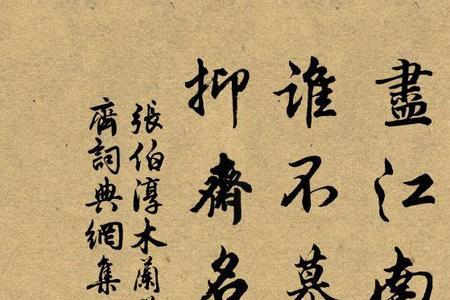 盡江南
誰不慕
抑齋名
張伯淳木蘭
齊詞典網集